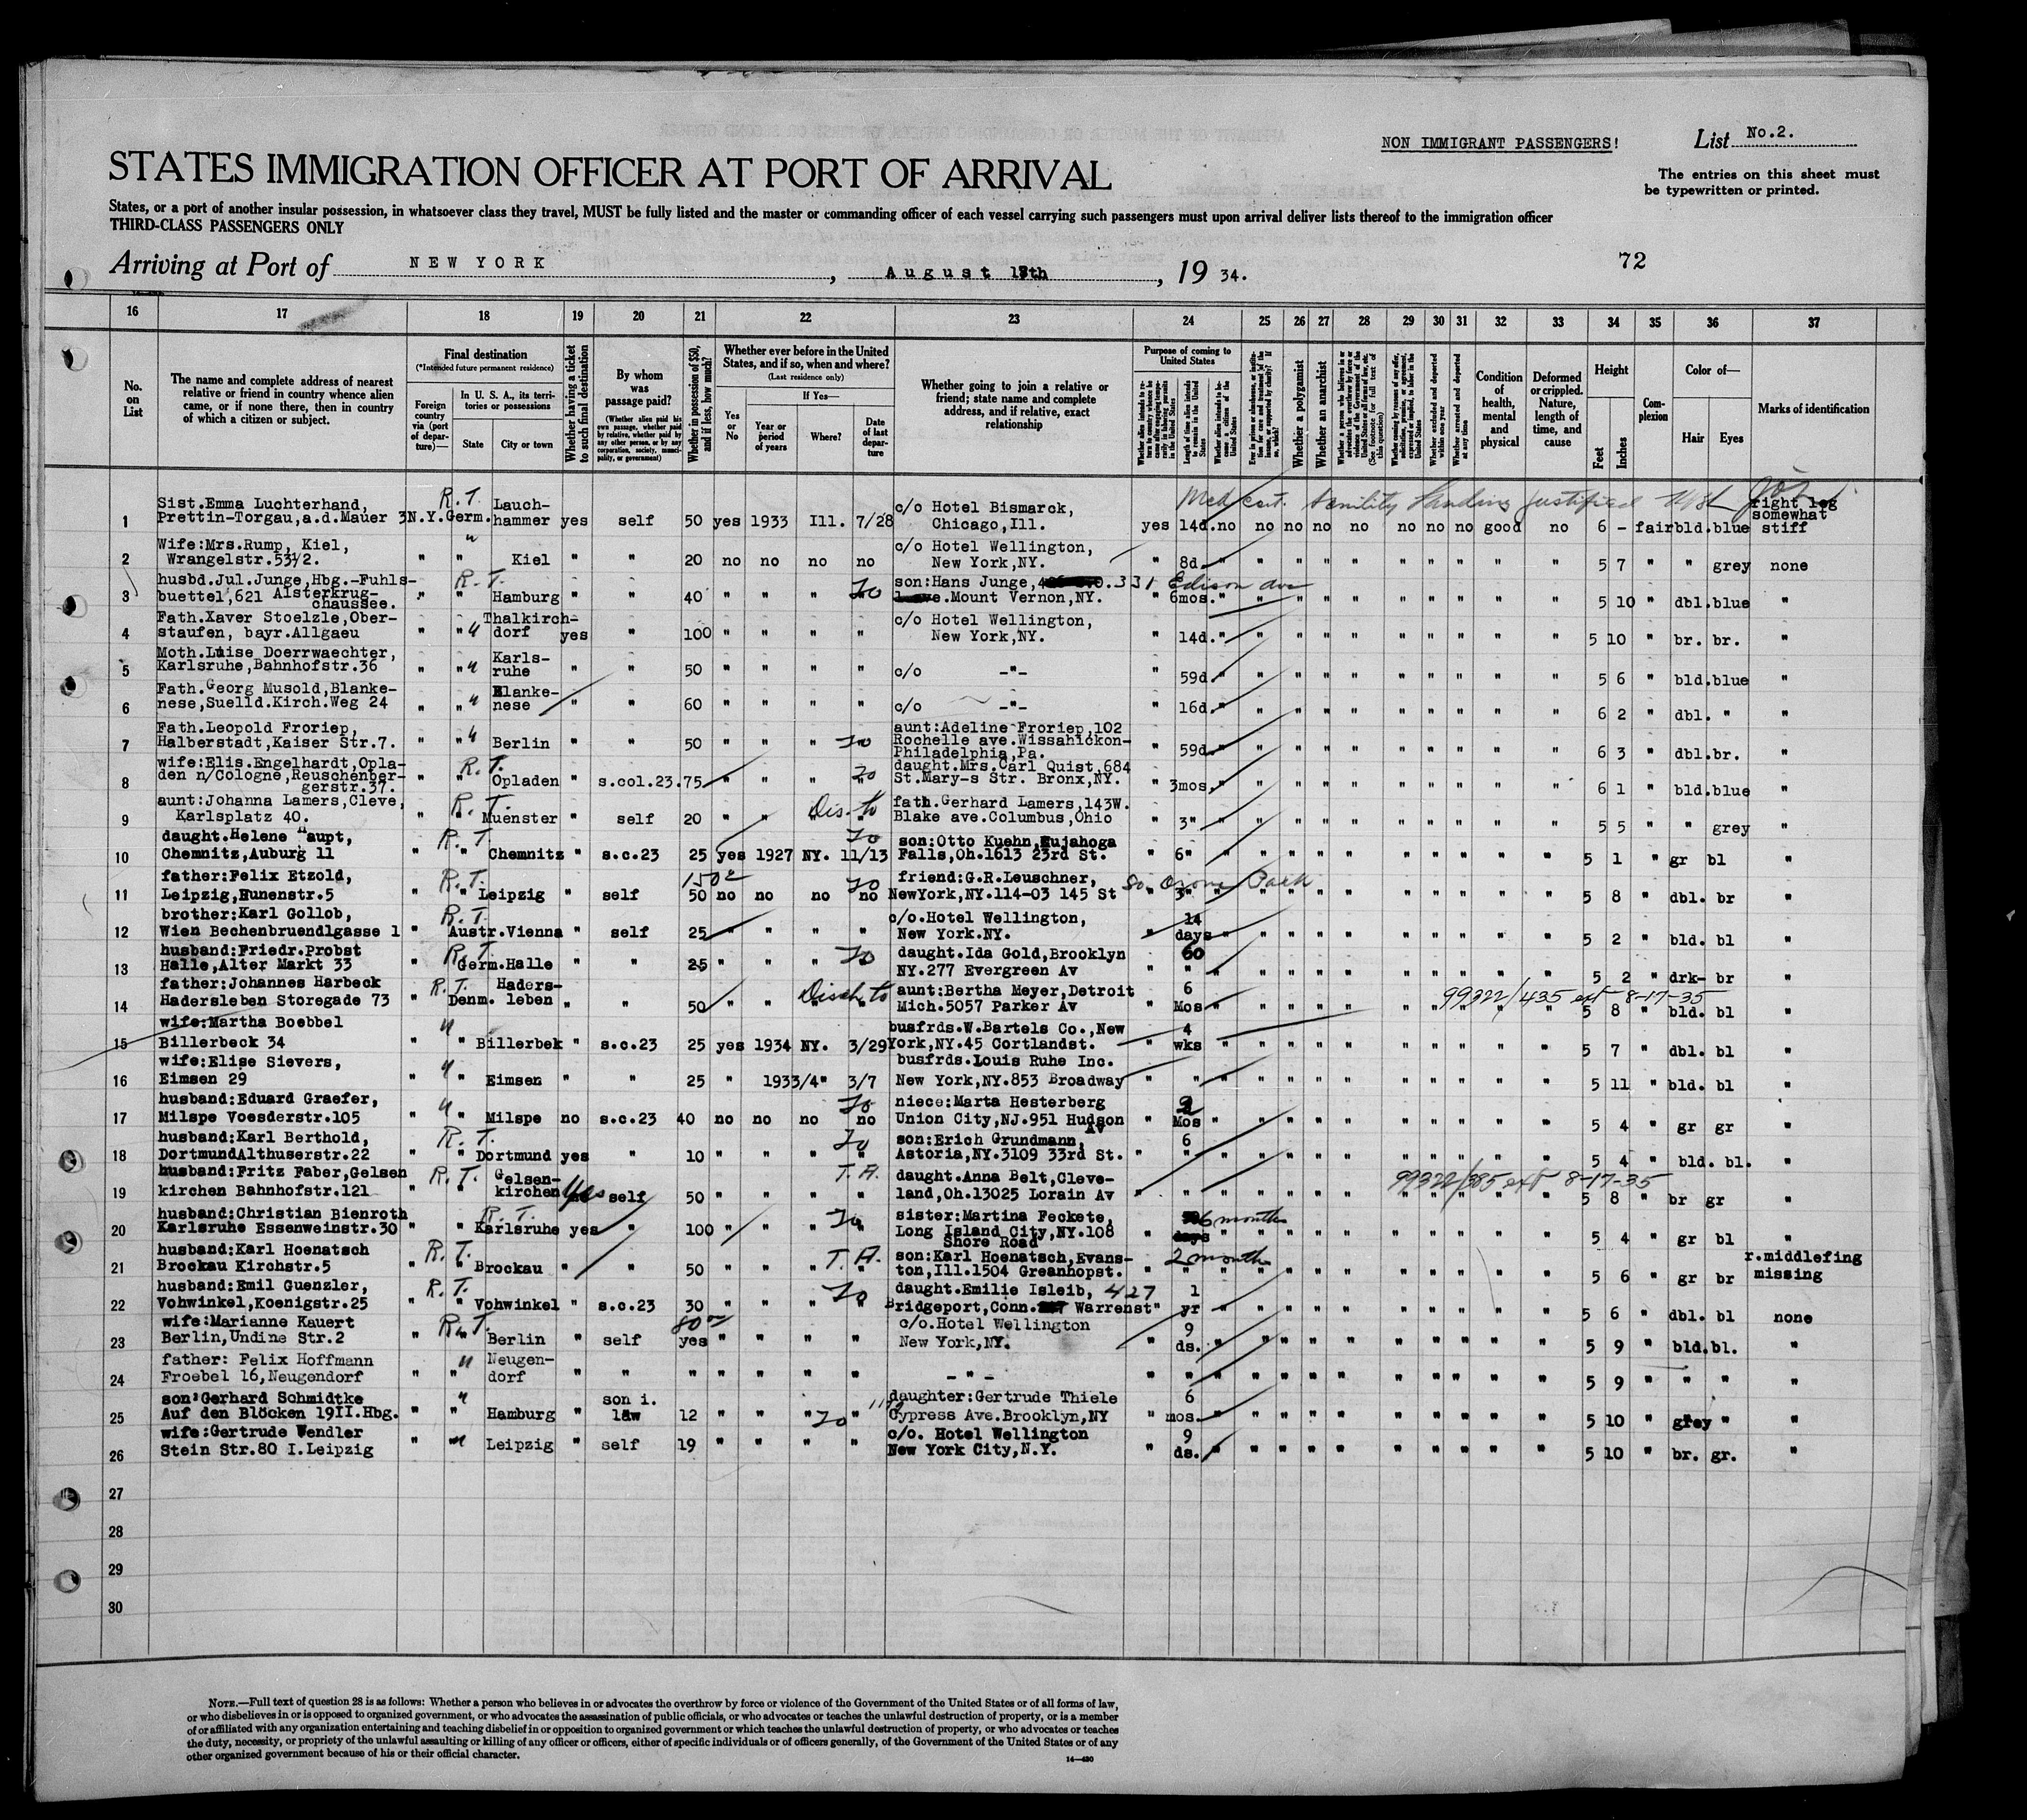 NON IMMIGRANT PASSENGERS!
List No.2.
STATES IMMIGRATION OFFICER AT PORT OF ARRIVAL
The entries on this sheet must
be typewritten or printed.
States, or a port of another insular possession, in whatsoever class they travel, MUST be fully listed and the master or commanding officer of each vessel carrying such passengers must upon arrival deliver lists thereof to the immigration officer
THIRD-CLASS PASSENGERS ONLY
Arriving at Port of NEW YORK, August 17th, 19 34.
72
16 17 18 19 20 21 22 23 24 25 26 27 28 29 30 31 32 33 34 35 36 37
No. on List
The name and complete address of nearest relative or friend in country whence alien came, or if none there, then in country of which a citizen or subject.
Final destination
(*Intended future permanent residence)
Foreign country via (port of departure)—
In U. S. A., its territories or possessions
State
City or town
Whether having a ticket to such final destination
By whom was passage paid?
(Whether alien paid his own passage, whether paid by relative, whether paid by any other person, or by any corporation, society, municipality, or government)
Whether in possession of $50, and if less, how much?
Whether ever before in the United States, and if so, when and where?
(Last residence only)
Yes or No
If Yes—
Year or period of years
Where?
Date of last departure
Whether going to join a relative or friend; state name and complete address, and if relative, exact relationship
Purpose of coming to United States
Length of time alien intends to remain in the United States
Whether alien intends to become a citizen of the United States
Whether a polygamist
Whether an anarchist
Whether excluded and deported within one year
Whether arrested and deported at any time
Condition of health, mental and physical
Deformed or crippled. Nature, length of time, and cause
Height
Feet
Inches
Complexion
Color of—
Hair
Eyes
Marks of identification
1 Sist.Emma Luchterhand, Prettin-Torgau,a.d.Mauer 3 N.Y. R.T. Germ. Lauchhammer yes self 50 yes 1933 Ill. 7/28 c/o Hotel Bismarck, Chicago,Ill. yes 14d. no no no no no no no no good no 6 - fair bld. blue right leg somewhat stiff
2 Wife:Mrs.Rump, Kiel, Wrangelstr.53½2. " " Kiel " " 20 no no no no c/o Hotel Wellington, New York,NY. " 8d. " " " " " " " " " " 5 7 " " grey none
3 husbd.Jul.Junge,Hbg.-Fuhlsbuettel,621 Alsterkrugchaussee. " R.T. " Hamburg " " 40 " " " " son:Hans Junge, 331 Edison ave .Mount Vernon,NY. " 6mos. " " " " " " " " " " 5 10 " dbl. blue "
4 Fath.Xaver Stoelzle,Oberstaufen, bayr.Allgaeu " " Thalkirchdorf yes " 100 " " " " c/o Hotel Wellington, New York,NY. " 14d. " " " " " " " " " " 5 10 " br. br. "
5 Moth.Luise Doerrwaechter, Karlsruhe,Bahnhofstr.36 " " Karlsruhe " " 50 " " " " c/o -"- " 59d. " " " " " " " " " 5 6 " bld. blue "
6 Fath.Georg Musold,Blankenese,Suelld.Kirch.Weg 24 " " Blankenese " " 60 " " " " c/o -"- " 16d. " " " " " " " " " 6 2 " dbl. " "
7 Fath.Leopold Froriep, Halberstadt,Kaiser Str.7. " " Berlin " " 50 " " " aunt:Adeline Froriep,102 Rochelle ave.Wissahickon-Philadelphia,Pa. " 59d. " " " " " " " " " 6 3 " dbl. br. "
8 wife:Elis.Engelhardt,Opladen n/Cologne,Reuschenbergerstr.37. " R.T. " Opladen " s.col.23. 75 " " " " daught.Mrs.Carl Quist,684 St.Mary-s Str. Bronx,NY. " 3mos. " " " " " " " " " 6 1 " bld. blue "
9 aunt:Johanna Lamers,Cleve, Karlsplatz 40. " R.T. " Muenster " self 20 " " fath.Gerhard Lamers,143W. Blake ave.Columbus,Ohio " 3" " " " " " " " " " " 5 5 " " grey "
10 daught.Helene Haupt, Chemnitz,Auburg 11 " R.T. " Chemnitz " s.c.23 25 yes 1927 NY. 11/13 son:Otto Kuehn,Kujahoga Falls,Oh.1613 23rd St. " 6" " " " " " " " " " " 5 1 " gr bl "
11 father:Felix Etzold, Leipzig,Hunenstr.5 " R.T. " Leipzig " self 50 no no no no friend:G.R.Leuschner, NewYork,NY.114-03 145 St So. Ozone Park " 3" " " " " " " " " " " 5 8 " dbl. br "
12 brother:Karl Gollob, Wien Bechenbruendlgasse 1 " R.T. Austr. Vienna " self 25 " " " " c/o.Hotel Wellington, New York.NY. " 14 days " " " " " " " " " " 5 2 " bld. bl "
13 husband:Friedr.Probst Halle,Alter Markt 33 " R.T. Germ. Halle " " 25 " " " " daught.Ida Gold,Brooklyn NY.277 Evergreen Av " 60 " " " " " " " " " " " 5 2 " drk- br "
14 father:Johannes Harbeck Hadersleben Storegade 73 " R.T. Denm. Hadersleben " " 50 " " Disch to " aunt:Bertha Meyer,Detroit Mich.5057 Parker Av " 6 Mos " " " " " " 99322/435 ext 8-17-35 5 8 " bld. bl "
15 wife:Martha Boebbel Billerbeck 34 " " Billerbek " s.c.23 25 yes 1934 NY. 3/29 busfrds.W.Bartels Co.,New York,NY.45 Cortlandst. " 4 wks " " " " " " " " " " 5 7 " dbl. bl "
16 wife:Elise Sievers, Eimsen 29 " " Eimsen " " 25 " 1933/4 " 3/7 busfrds.Louis Ruhe Inc. New York,NY.853 Broadway " " " " " " " " " " " 5 11 " bld. bl "
17 husband:Eduard Graefer, Milspe Voesderstr.105 " " Milspe no s.c.23 40 no no no no niece:Marta Hesterberg Union City,NJ.951 Hudson Av " Mos " " " " " " " " " " 5 4 " gr gr "
18 husband:Karl Berthold, DortmundAlthuserstr.22 " R.T. " Dortmund yes " 10 " " " " son:Erich Grundmann, Astoria,NY.3109 33rd St. " 6 " " " " " " " " " " 5 4 " bld. bl. "
19 husband:Fritz Faber,Gelsenkirchen Bahnhofstr.121 " R.T. " Gelsenkirchen yes self 50 " " " T.A. daught.Anna Belt,Cleveland,Oh.13025 Lorain Av " " " " " " " 99322/385 ext 8-17-35 5 8 " br gr "
20 husband:Christian Bienroth Karlsruhe Essenweinstr.30 " R.T. " Karlsruhe yes " 100 " " " " sister:Martina Feckete, Long Island City,NY.108 Shore Road " 6 months " " " " " " " " " " 5 4 " gr bl "
21 husband:Karl Hoenatsch Brockau Kirchstr.5 " R.T. " Brockau " " 50 " " " T.A. son:Karl Hoenatsch,Evanston,Ill.1504 Greanhopst. " 2 month " " " " " " " " " " 5 6 " gr br r.middlefing missing
22 husband:Emil Guenzler, Vohwinkel,Koenigstr.25 " R.T. " Vohwinkel " s.c.23 30 " " " " daught.Emilie Isleib, 427 Bridgeport,Conn. Warrenst " 1 yr " " " " " " " " " " 5 6 " dbl. bl none
23 wife:Marianne Kauert Berlin,Undine Str.2 " R.T. " Berlin " self yes 80 " " " " c/o.Hotel Wellington New York,NY. " 9 ds. " " " " " " " " " " 5 9 " bld. bl. "
24 father: Felix Hoffmann Froebel 16,Neugendorf " " Neugendorf " " " " " " " - " - " " " " " " " " " " " " 5 9 " " " "
25 son:Gerhard Schmidtke Auf den Blöcken 19II.Hbg. " " Hamburg " son i. law 12 " " " " daughter:Gertrude Thiele Cypress Ave.Brooklyn,NY " 6 mos. " " " " " " " " " " 5 10 " grey " "
26 wife:Gertrude Wendler Stein Str.80 I.Leipzig " " Leipzig " self 19 " " " " c/o. Hotel Wellington New York City,N.Y. " 9 ds. " " " " " " " " " " 5 10 " br. gr. "
27
28
29
30
NOTE.—Full text of question 28 is as follows: Whether a person who believes in or advocates the overthrow by force or violence of the Government of the United States or of all forms of law,
or who disbelieves in or is opposed to organized government, or who advocates the assassination of public officials, or who advocates or teaches the unlawful destruction of property, or is a member
of or affiliated with any organization entertaining and teaching disbelief in or opposition to organized government or which teaches the unlawful destruction of property, or who advocates or teaches
the duty, necessity, or propriety of the unlawful assaulting or killing of any officer or officers, either of specific individuals or of officers generally, of the Government of the United States or of any
other organized government because of his or their official character.
14—430